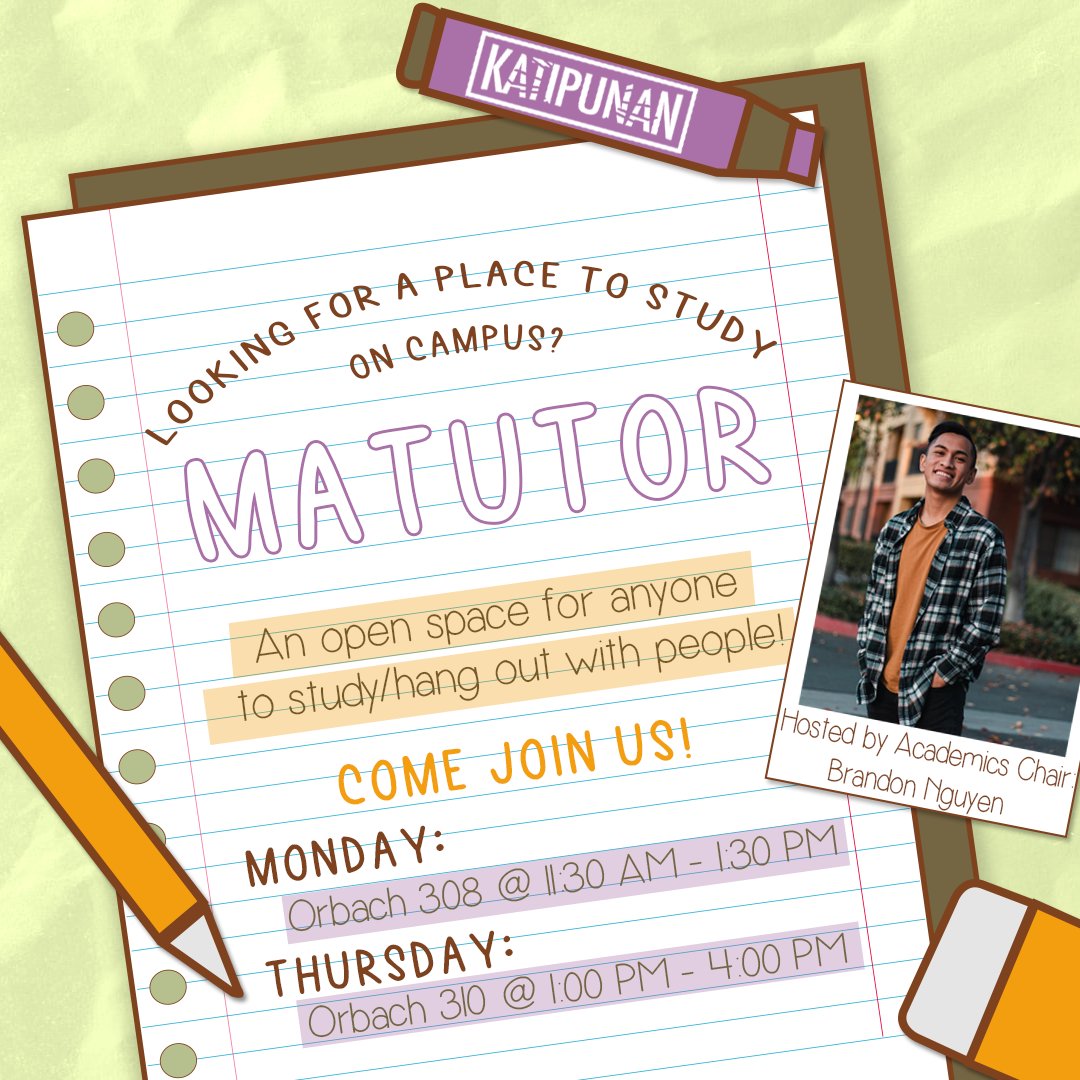 KATIPUNAN
LOOKING FOR A PLACE TO STUDY
ON CAMPUS?
MATUTOR
An open space for anyone
to study/hang out with people!
COME JOIN US!
Hosted by Academics Chair:
Brandon Nguyen
MONDAY:
Orbach 308 @ 11:30 AM - 1:30 PM
THURSDAY:
Orbach 310 @ 1:00 PM - 4:00 PM